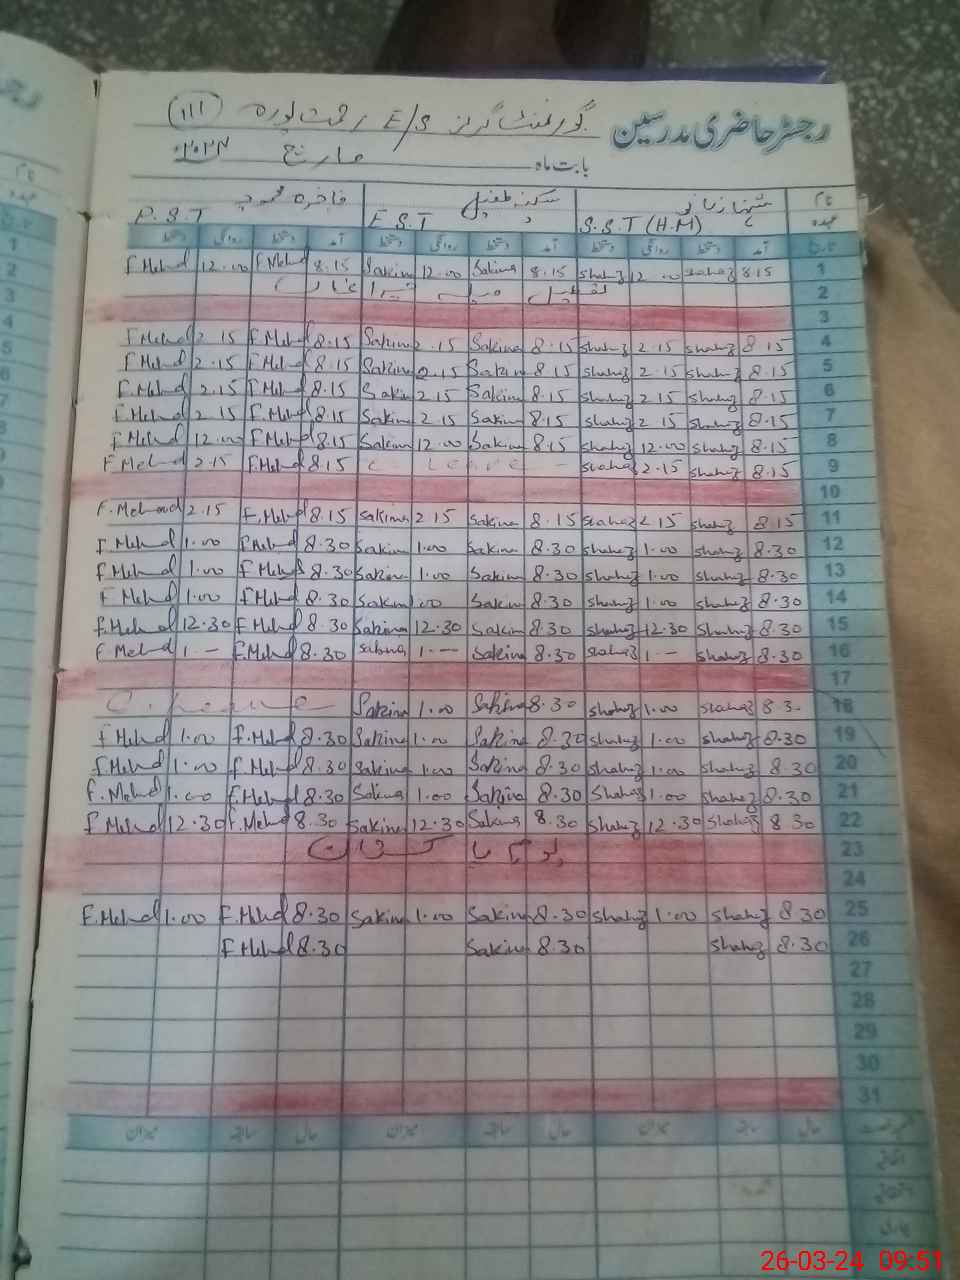 رجسٹر حاضری مدرسین گورنمنٹ گرلز E/S رحمت پورہ (111)
بابت ماہ مارچ ۲۰۲۴
نام شہناز بی بی سکینہ طفیل فاخرہ محمود
عہدہ S.S.T (H.M) E.S.T P.S.T
تاریخ آمد دستخط روانگی دستخط آمد دستخط روانگی دستخط آمد دستخط روانگی دستخط
F.Mehd 12.00 F.Mehd 8.15 Sakina 12.00 Sakina 8.15 Shahnaz 12.00 Shahnaz 8.15 1
2
3
F.Mehd 2.15 F.Mehd 8.15 Sakina 2.15 Sakina 8.15 Shahnaz 2.15 Shahnaz 8.15 4
F.Mehd 2.15 F.Mehd 8.15 Sakina 2.15 Sakina 8.15 Shahnaz 2.15 Shahnaz 8.15 5
F.Mehd 2.15 F.Mehd 8.15 Sakina 2.15 Sakina 8.15 Shahnaz 2.15 Shahnaz 8.15 6
F.Mehd 2.15 F.Mehd 8.15 Sakina 2.15 Sakina 8.15 Shahnaz 2.15 Shahnaz 8.15 7
F.Mehd 12.00 F.Mehd 8.15 Sakina 12.00 Sakina 8.15 Shahnaz 12.00 Shahnaz 8.15 8
F.Mehd 2.15 F.Mehd 8.15 C Leave Shahnaz 2.15 Shahnaz 8.15 9
10
F.Mehmood 2.15 F.Mehd 8.15 Sakina 2.15 Sakina 8.15 Shahnaz 2.15 Shahnaz 8.15 11
F.Mehd 1.00 F.Mehd 8.30 Sakina 1.00 Sakina 8.30 Shahnaz 1.00 Shahnaz 8.30 12
F.Mehd 1.00 F.Mehd 8.30 Sakina 1.00 Sakina 8.30 Shahnaz 1.00 Shahnaz 8.30 13
F.Mehd 1.00 F.Mehd 8.30 Sakina 1.00 Sakina 8.30 Shahnaz 1.00 Shahnaz 8.30 14
F.Mehd 12.30 F.Mehd 8.30 Sakina 12.30 Sakina 8.30 Shahnaz 12.30 Shahnaz 8.30 15
F.Mehd 1.— F.Mehd 8.30 Sakina 1.— Sakina 8.30 Shahnaz 1.— Shahnaz 8.30 16
17
C. Leave Sakina 1.00 Sakina 8.30 Shahnaz 1.00 Shahnaz 8.30 18
F.Mehd 1.00 F.Mehd 8.30 Sakina 1.00 Sakina 8.30 Shahnaz 1.00 Shahnaz 8.30 19
F.Mehd 1.00 F.Mehd 8.30 Sakina 1.00 Sakina 8.30 Shahnaz 1.00 Shahnaz 8.30 20
F.Mehd 1.00 F.Mehd 8.30 Sakina 1.00 Sakina 8.30 Shahnaz 1.00 Shahnaz 8.30 21
F.Mehd 12.30 F.Mehd 8.30 Sakina 12.30 Sakina 8.30 Shahnaz 12.30 Shahnaz 8.30 22
یوم پاکستان 23
24
F.Mehd 1.00 F.Mehd 8.30 Sakina 1.00 Sakina 8.30 Shahnaz 1.00 Shahnaz 8.30 25
F.Mehd 8.30 Sakina 8.30 Shahnaz 8.30 26
27
28
29
30
31
حال سابقہ میزان حال سابقہ میزان حال سابقہ میزان
اتفاقیہ
استحقاقیہ
بیماری
26-03-24 09:51